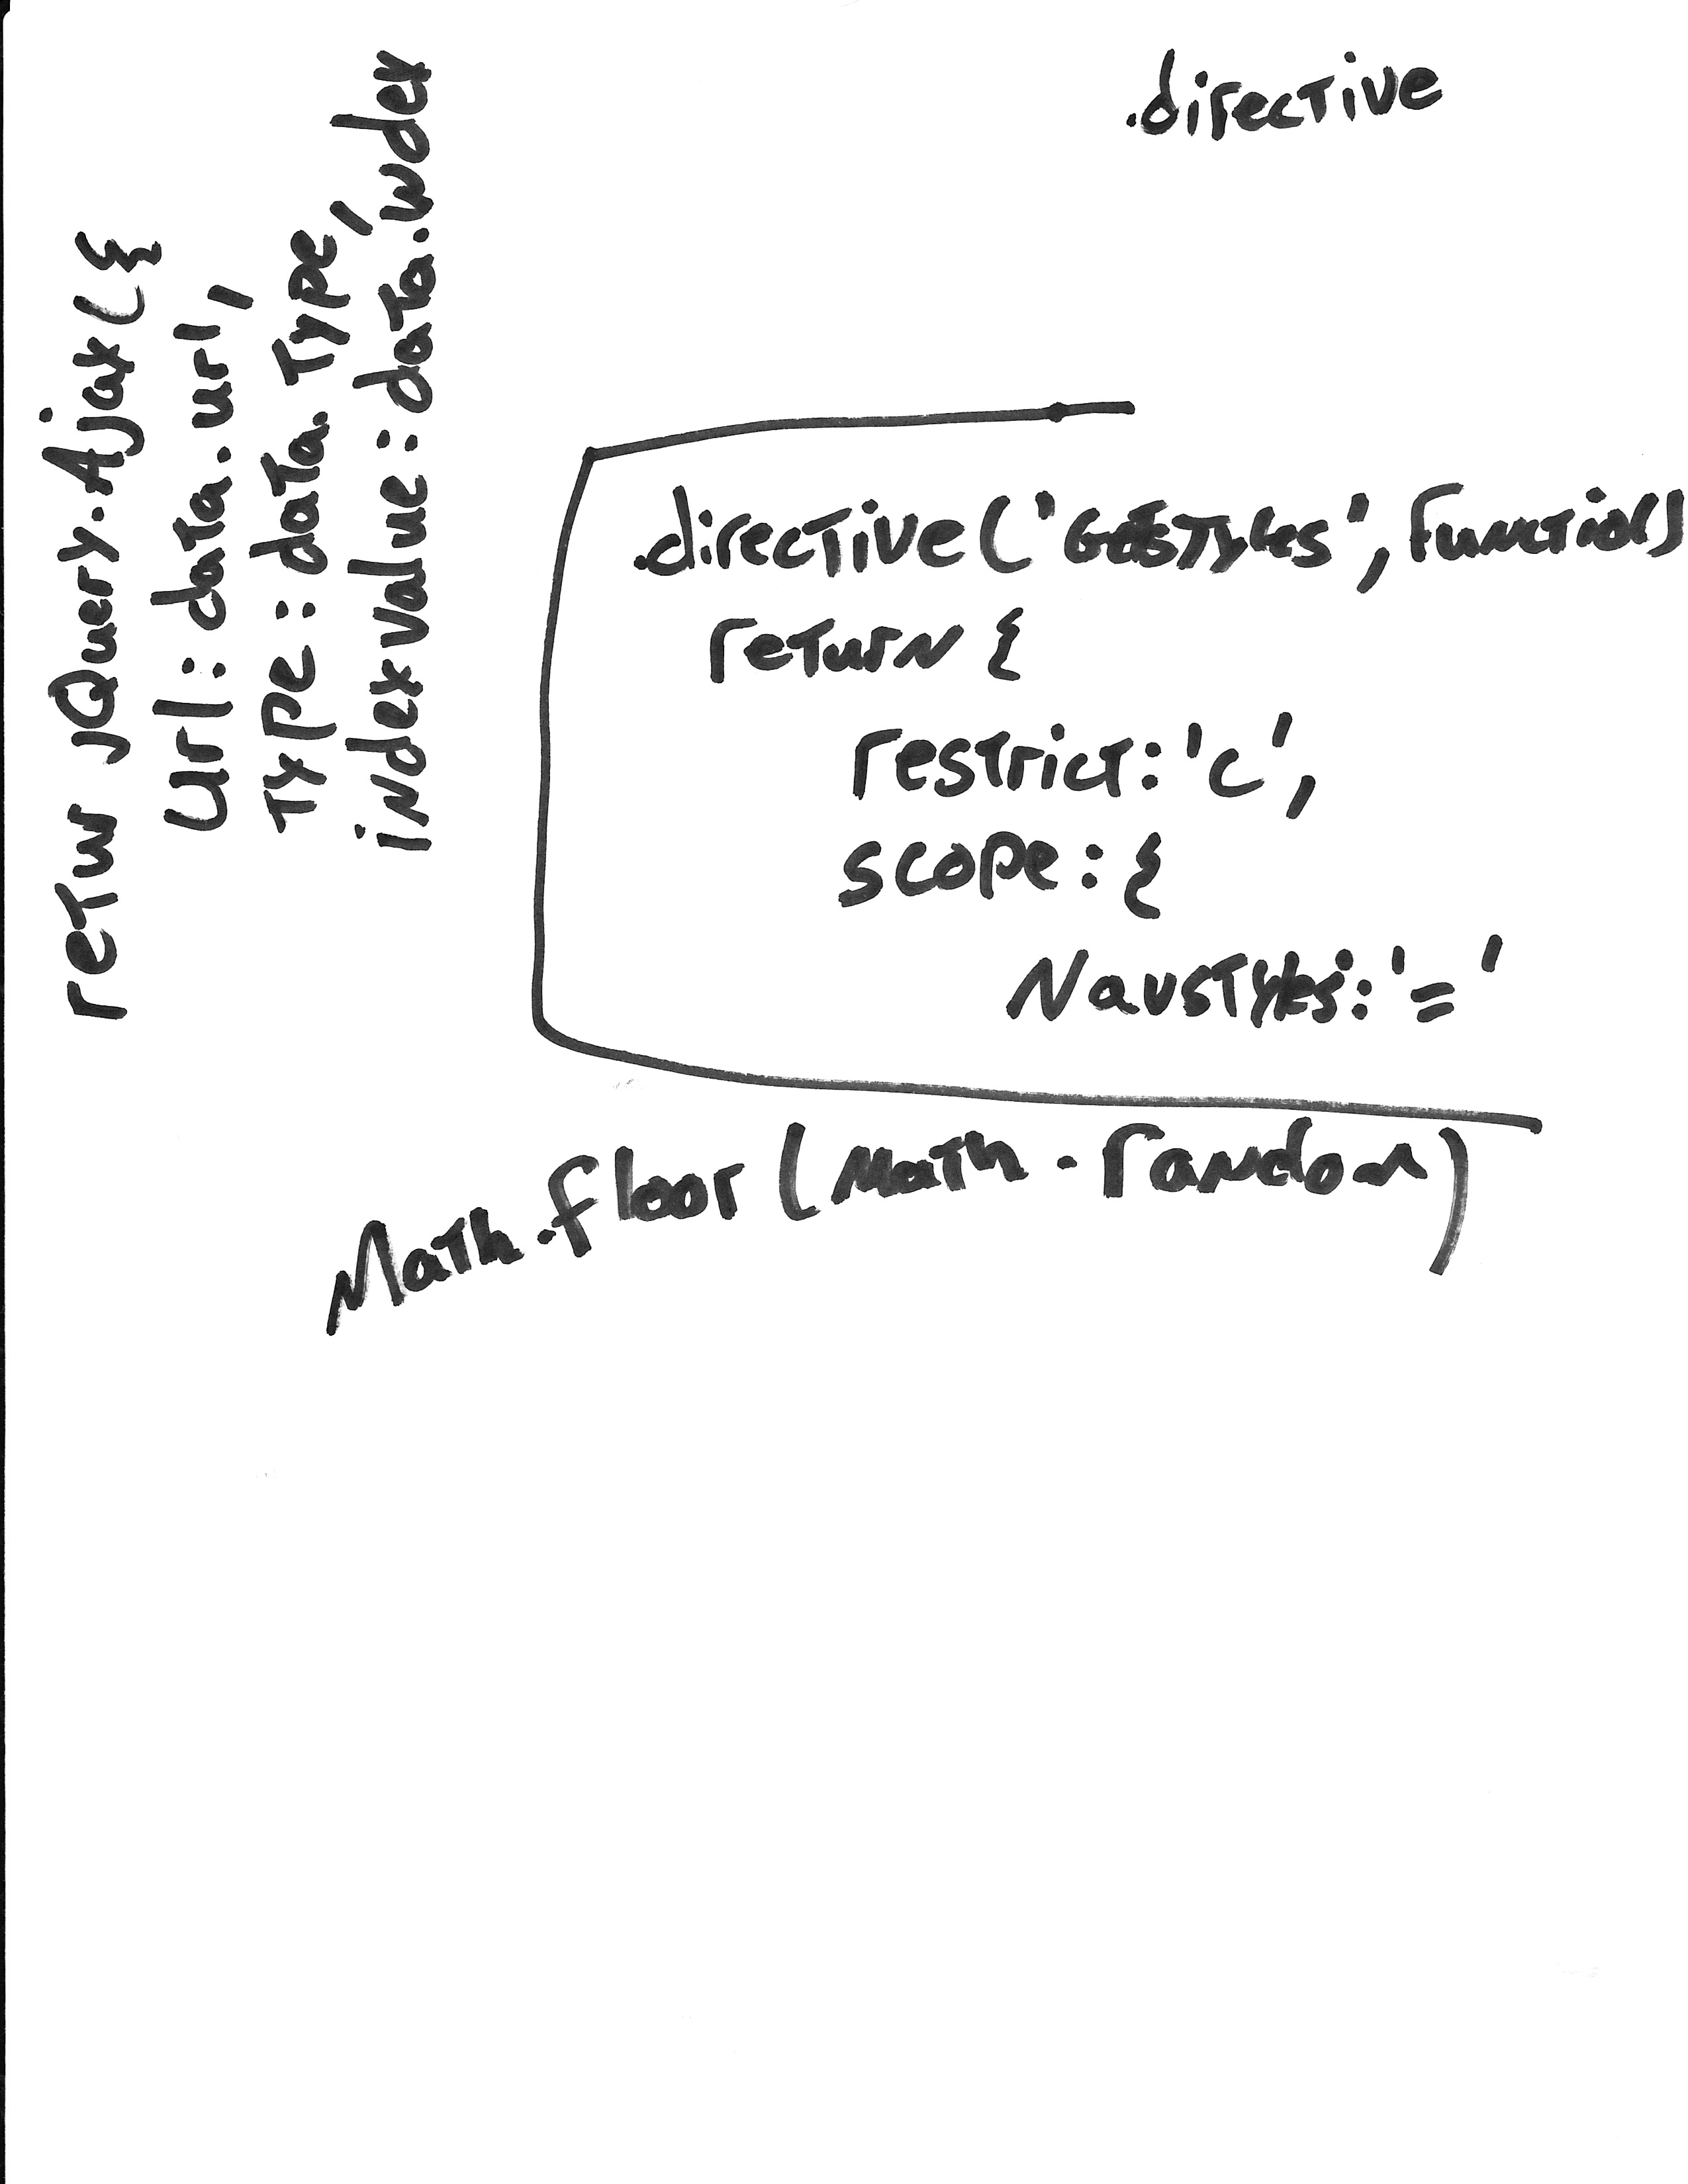 .directive
return jQuery.Ajax({
url: data.url,
Type: data.Type,
index value: data.index
.directive('GetStyles', function()
return {
restrict: 'c',
scope: {
NavStyles: '='
Math.floor(Math.random)